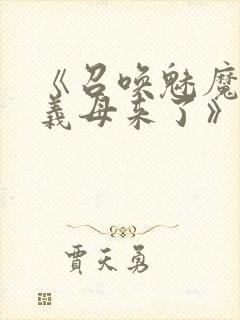 《召唤魅魔
義母来了》
賈天勇